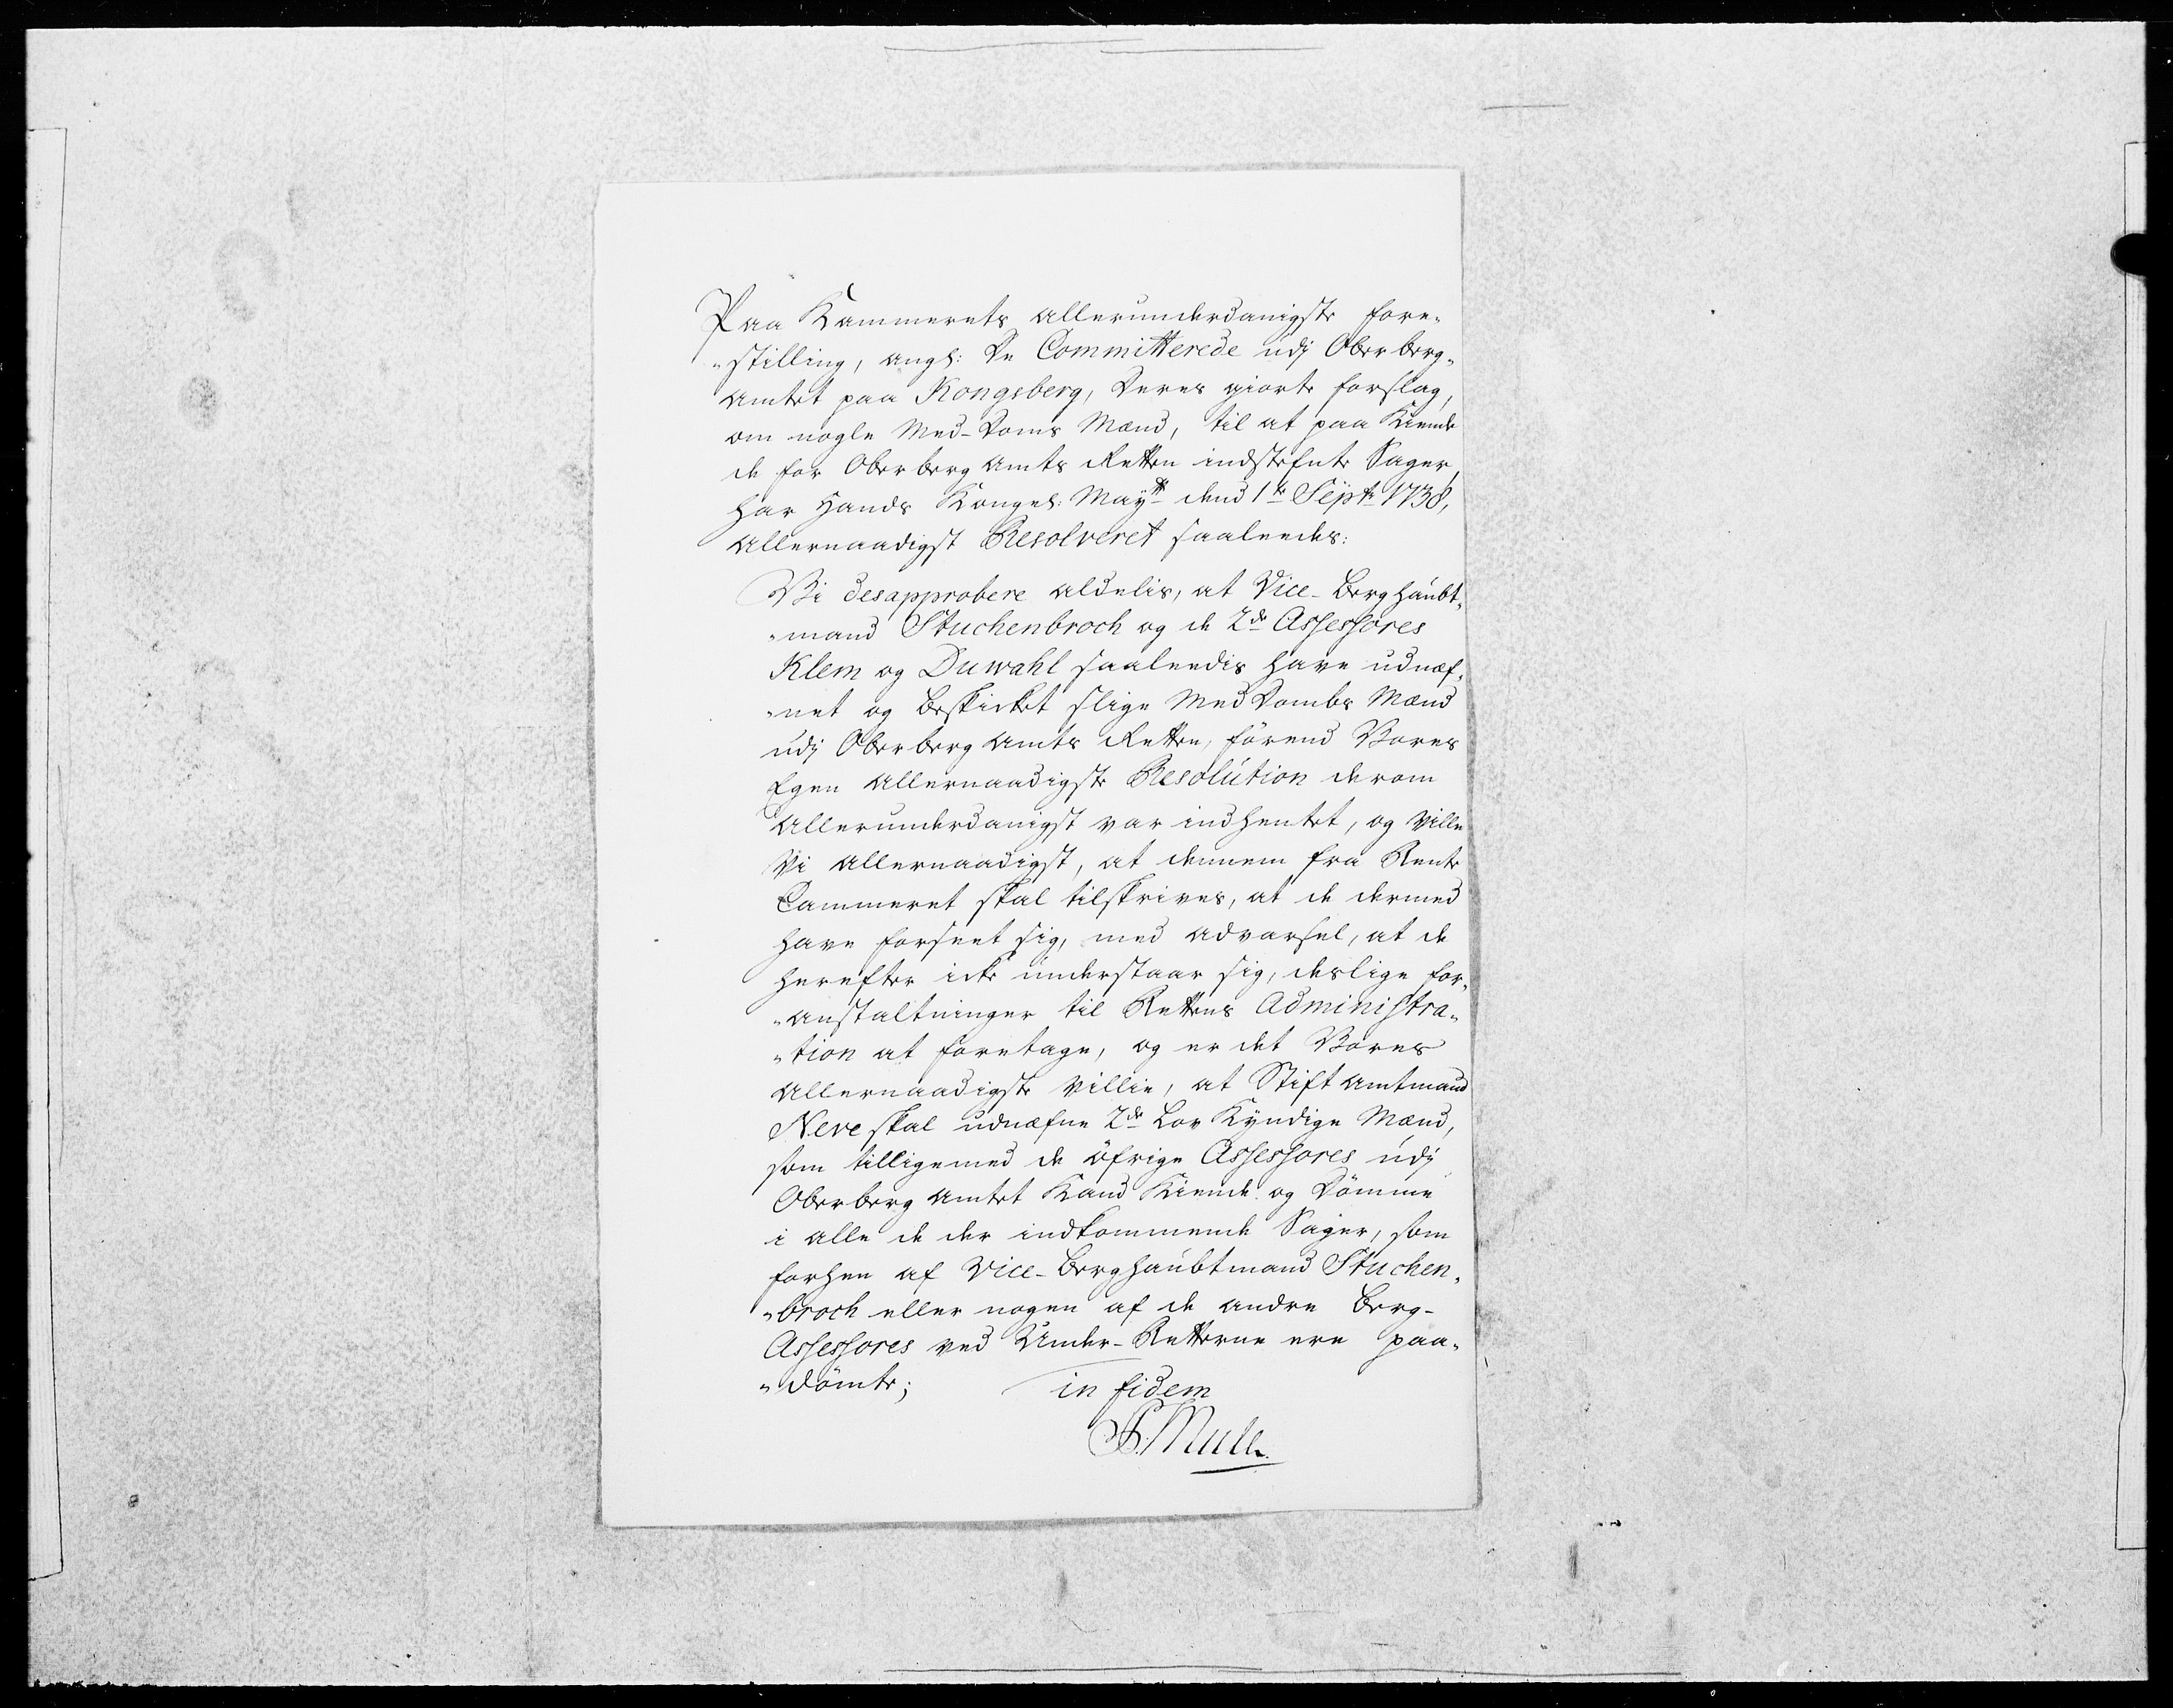 Paa Kammerets allerunderdanigste fore-
"stilling, angl: De Committerede udj Oberberg-
Amtet paa Kongsberg, Deres giorte forslag,
om nogle Med-Doms Mænd, til at paa Kiende
de for Oberberg Amts Retten indstefnte Sager,
har Hands Kongel: Mayts dend 1te Septr 1738,
Allernaadigst Resolveret saaleedes:
Vi desapprobere aldelis, at Vice-Berghaubt-
"mand Stuchenbroch og de 2de Assessores
Klem og Duwahl saaleedis have udnæf-
"net og beskicket slige MedDombs Mænd
udj Oberberg Amts Retten, förend Vores
Egen Allernaadigste Resolution derom
Allerunderdanigst var indhentet, og Ville
Vi Allernaadigst, at dennem fra Rente
Cammeret skal tilskrives, at de dermed
have forseet sig, med advarsel, at de
herefter icke understaar sig, deslige for-
"anstaltninger til Rettens Administra-
"tion at foretage, og er det Vores
Allernaadigste Villie, at Stift Amtmand
Neve skal udnæfne 2de Lov Kyndige Mænd,
som tilligemed de öfrige Assessores udj
Oberberg Amtet Kand Kiende og Dömme
i alle de der indkommende Sager, som
forhen af Vice-Berghaubtmand Stuchen-
"broch eller nogen af de andre Berg-
Assessores ved Under-Retterne ere paa-
"dömte;
in fidem
Mule